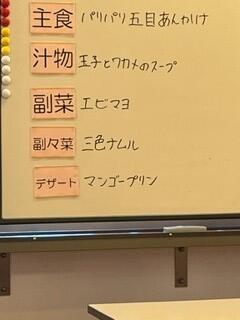 主食 パリパリ五目あんかけ
汁物 玉子とワカメのスープ
副菜 エビマヨ
副々菜 三色ナムル
デザート マンゴープリン